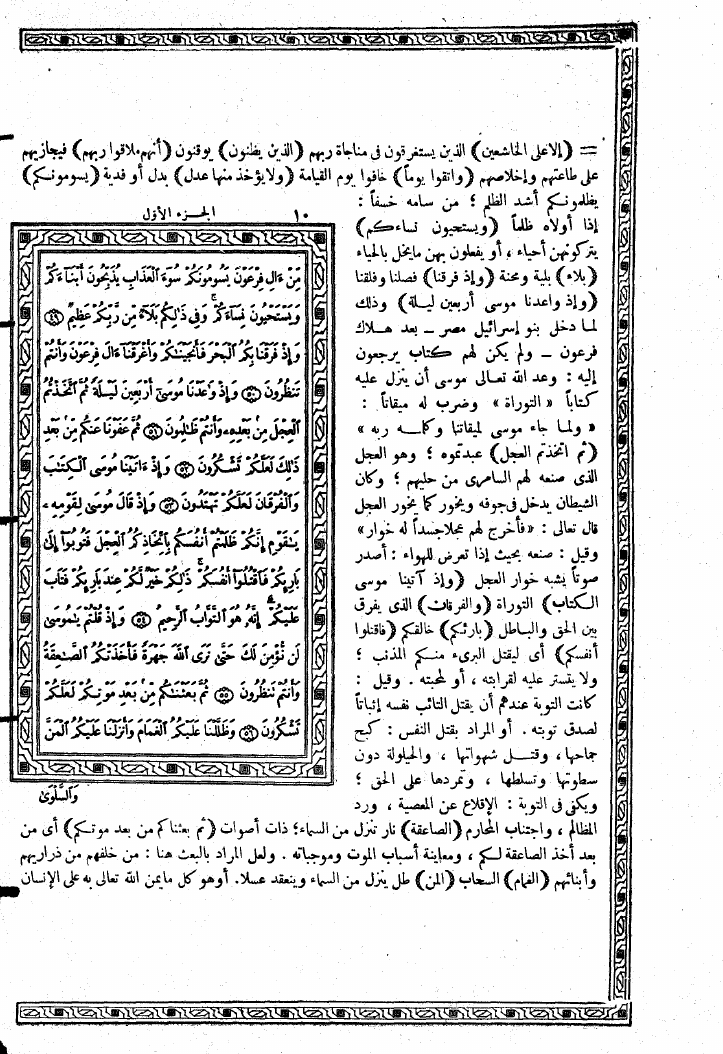 = (إلا على الخاشعين) الذين يستغرقون فى مناجاة ربهم (الذين يظنون) يوقنون (أنهم ملاقوا ربهم) فيجازيهم
على طاعتهم وإخلاصهم (واتقوا يوماً) خافوا يوم القيامة (ولا يؤخذ منها عدل) بدل أو فدية (يسومونكم)
يظلمونكم أشد الظلم ؛ من سامه خسفاً :
إذا أولاه ظلماً (ويستحيون نساءكم)
يتركونهن أحياء ، أو يفعلون بهن ما يخل بالحياء
(بلاء) بلية ومحنة (وإذ فرقنا) فصلنا وفلقنا
(وإذ واعدنا موسى أربعين ليلة) وذلك
لما دخل بنو إسرائيل مصر – بعد هلاك
فرعون – ولم يكن لهم كتاب يرجعون
إليه : وعد الله تعالى موسى أن ينزل عليه
كتاباً « التوراة » وضرب له ميقاتاً :
« ولما جاء موسى لميقاتنا وكلمه ربه »
(ثم اتخذتم العجل) عبدتموه ؛ وهو العجل
الذى صنعه لهم السامرى من حليهم ؛ وكان
الشيطان يدخل فى جوفه ويخور كما يخور العجل
قال تعالى : «فأخرج لهم عجلا جسداً له خوار»
وقيل : صنعه بحيث إذا تعرض للهواء : أصدر
صوتاً يشبه خوار العجل (وإذ آتينا موسى
الكتاب) التوراة (والفرقان) الذى يفرق
بين الحق والباطل (بارئكم) خالقكم (فاقتلوا
أنفسكم) أى ليقتل البرىء منكم المذنب ؛
ولا يتستر عليه لقرابته ، أو لمحبته . وقيل :
كانت التوبة عندهم أن يقتل التائب نفسه إثباتاً
لصدق توبته . أو المراد بقتل النفس : كبح
جماحها ، وقتل شهواتها ، والحيلولة دون
سطوتها وتسلطها ، وتمردها على الحق ؛
ويكفى فى التوبة : الإقلاع عن المعصية ، ورد
المظالم ، واجتناب المحارم (الصاعقة) نار تنزل من السماء؛ ذات أصوات (ثم بعثناكم من بعد موتكم) أى من
بعد أخذ الصاعقة لكم ، ومعاينة أسباب الموت وموجباته . ولعل المراد بالبعث هنا : من خلفهم من ذراريهم
وأبنائهم (الغمام) السحاب (المن) طل ينزل من السماء وينعقد عسلا. أو هو كل ما يمن الله تعالى به على الإنسان
١٠ الجزء الأول
مِّنْ ءَالِ فِرْعَوْنَ يَسُومُونَكُمْ سُوٓءَ ٱلْعَذَابِ يُذَبِّحُونَ أَبْنَآءَكُمْ
وَيَسْتَحْيُونَ نِسَآءَكُمْ ۚ وَفِى ذَٰلِكُم بَلَآءٌ مِّن رَّبِّكُمْ عَظِيمٌ ۝٤٩
وَإِذْ فَرَقْنَا بِكُمُ ٱلْبَحْرَ فَأَنجَيْنَٰكُمْ وَأَغْرَقْنَآ ءَالَ فِرْعَوْنَ وَأَنتُمْ
تَنظُرُونَ ۝٥٠ وَإِذْ وَٰعَدْنَا مُوسَىٰٓ أَرْبَعِينَ لَيْلَةً ثُمَّ ٱتَّخَذْتُمُ
ٱلْعِجْلَ مِنۢ بَعْدِهِۦ وَأَنتُمْ ظَٰلِمُونَ ۝٥١ ثُمَّ عَفَوْنَا عَنكُم مِّنۢ بَعْدِ
ذَٰلِكَ لَعَلَّكُمْ تَشْكُرُونَ ۝٥٢ وَإِذْ ءَاتَيْنَا مُوسَى ٱلْكِتَٰبَ
وَٱلْفُرْقَانَ لَعَلَّكُمْ تَهْتَدُونَ ۝٥٣ وَإِذْ قَالَ مُوسَىٰ لِقَوْمِهِۦ
يَٰقَوْمِ إِنَّكُمْ ظَلَمْتُمْ أَنفُسَكُم بِٱتِّخَاذِكُمُ ٱلْعِجْلَ فَتُوبُوٓا۟ إِلَىٰ
بَارِئِكُمْ فَٱقْتُلُوٓا۟ أَنفُسَكُمْ ۚ ذَٰلِكُمْ خَيْرٌ لَّكُمْ عِندَ بَارِئِكُمْ فَتَابَ
عَلَيْكُمْ ۚ إِنَّهُۥ هُوَ ٱلتَّوَّابُ ٱلرَّحِيمُ ۝٥٤ وَإِذْ قُلْتُمْ يَٰمُوسَىٰ
لَن نُّؤْمِنَ لَكَ حَتَّىٰ نَرَى ٱللَّهَ جَهْرَةً فَأَخَذَتْكُمُ ٱلصَّٰعِقَةُ
وَأَنتُمْ تَنظُرُونَ ۝٥٥ ثُمَّ بَعَثْنَٰكُم مِّنۢ بَعْدِ مَوْتِكُمْ لَعَلَّكُمْ
تَشْكُرُونَ ۝٥٦ وَظَلَّلْنَا عَلَيْكُمُ ٱلْغَمَامَ وَأَنزَلْنَا عَلَيْكُمُ ٱلْمَنَّ
وَٱلسَّلْوَىٰ